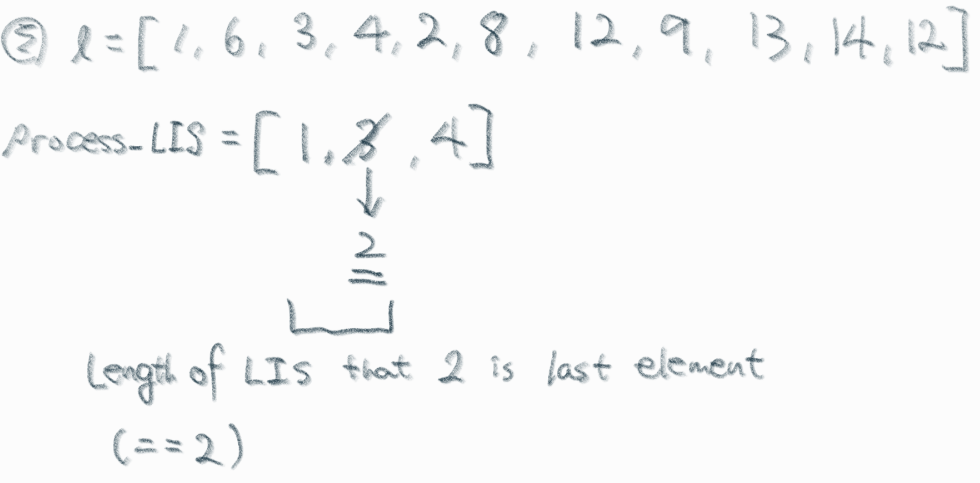 ② l = [ 1, 6, 3, 4, 2, 8, 12, 9, 13, 14, 12 ]
Process_LIS = [ 1, 3, 4 ]
↓
2
Length of LIS that 2 is last element
(==2)